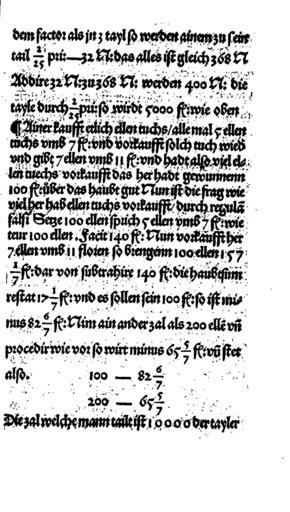 dem factor als jn 3 tayl so werden ainem zu sein
tail 2/25 pri:—32 N: das alles ist gleich 368 N
Addire 32 N: zu 368 N: werden 400 N: die
tayle durch 2/25 pri: so wirdt 5000 fl: wie oben
¶ Ainer kaufft etlich ellen tuchs / alle mal 5 ellen
tuchs vmb 7 fl: vnd vorkaufft solch tuch wied
vnd gibt 7 ellen vmb 11 fl: vnd hadt also viel el
len tuechs vorkaufft das her hadt gewunnenn
100 fl: über das haubt gut Nun ist die frag wie
viel her hab ellen tuchs vorkaufft / durch regulā
falsi Setze 100 ellen sprich 5 ellen vmb 7 fl: wie
teur 100 ellen. Facit 140 fl: Nun vorkaufft her
7 ellen vmb 11 floren so brengenn 100 ellen 157
1/7 fl: dar von subtrahir 140 fl: die haubtsum
restat 17 1/7 fl: vnd es sollen sein 100 fl: so ist mi-
nus 82 6/7 fl: Nim ain ander zal als 200 elle vn̄
procedir wie vor so wirt minus 65 5/7 fl: vn̄ stet
also. 100 — 82 6/7
200 — 65 5/7
Die zal welche mann tailt ist 10000 der tayler